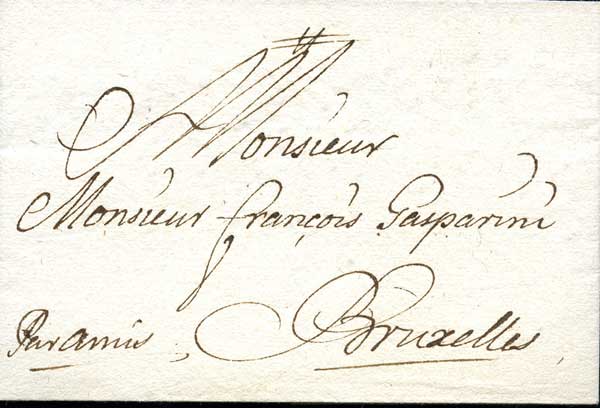 Monsieur
Monsieur françois Gasparini
Par amis Bruxelles